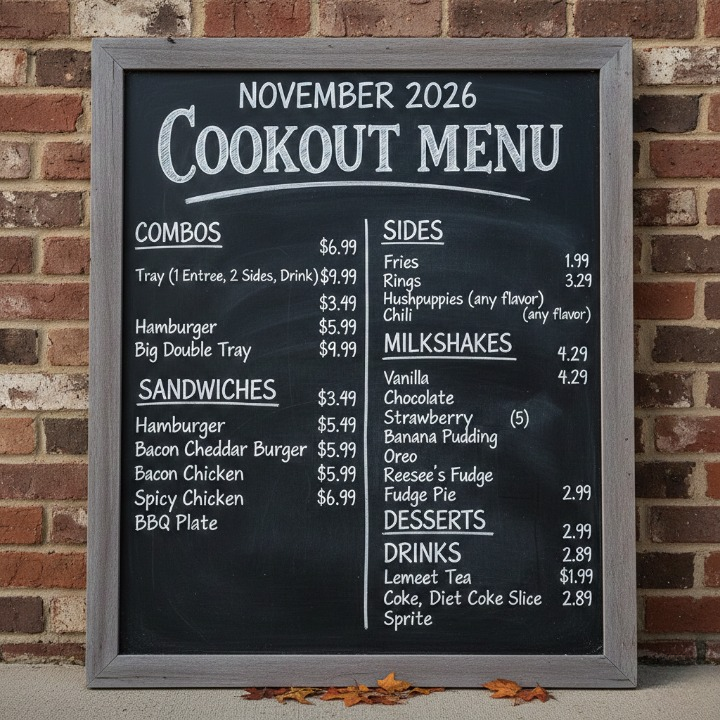 NOVEMBER 2026
COOKOUT MENU
COMBOS
$6.99
Tray (1 Entree, 2 Sides, Drink) $9.99
$3.49
Hamburger $5.99
Big Double Tray $9.99
SANDWICHES
$3.49
Hamburger $5.49
Bacon Cheddar Burger $5.99
Bacon Chicken $5.99
Spicy Chicken $6.99
BBQ Plate
SIDES
Fries 1.99
Rings 3.29
Hushpuppies (any flavor)
Chili (any flavor)
MILKSHAKES
4.29
Vanilla 4.29
Chocolate
Strawberry (5)
Banana Pudding
Oreo
Reesee's Fudge
Fudge Pie 2.99
DESSERTS
2.99
DRINKS 2.89
Lemeet Tea $1.99
Coke, Diet Coke Slice 2.89
Sprite